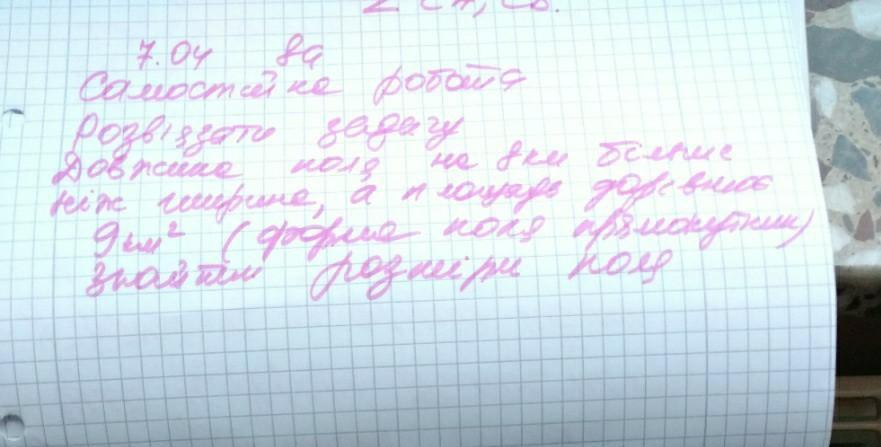 7.04 8а
Самостійна робота
Розвіззати задачу
Довжина поля на 8км більше
ніж ширина, а площадь дорівнює
9км² (форма поля прямокутник)
знайти розміри поля